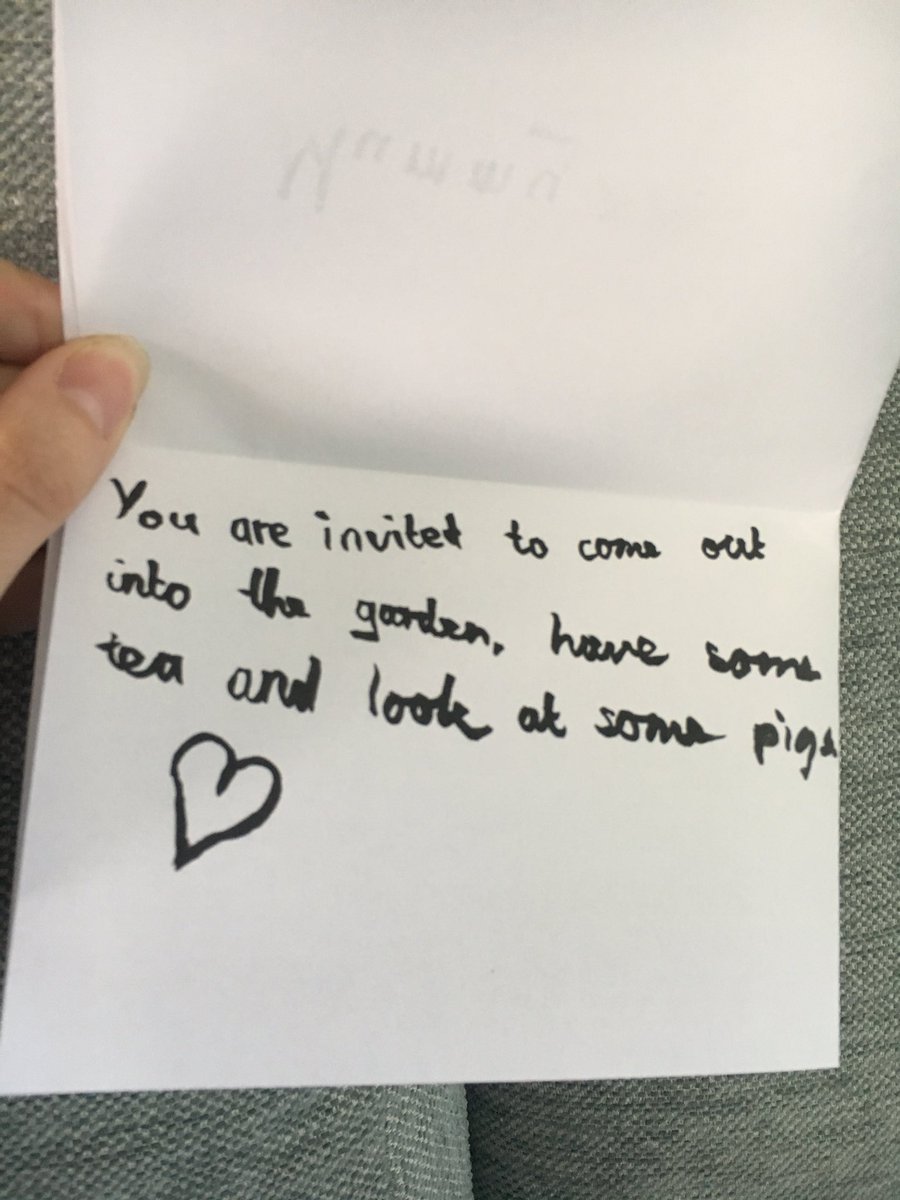 You are invited to come out
into the garden, have some
tea and look at some pigs